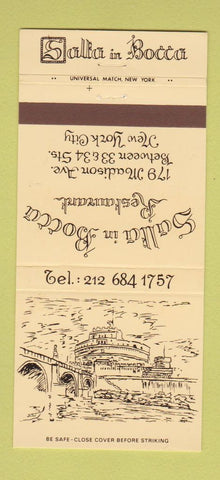 Salta in Bocca
UNIVERSAL MATCH, NEW YORK
Salta in Bocca
Restaurant
179 Madison Ave.
Between 33 & 34 Sts.
New York City
Tel.: 212 684 1757
BE SAFE - CLOSE COVER BEFORE STRIKING